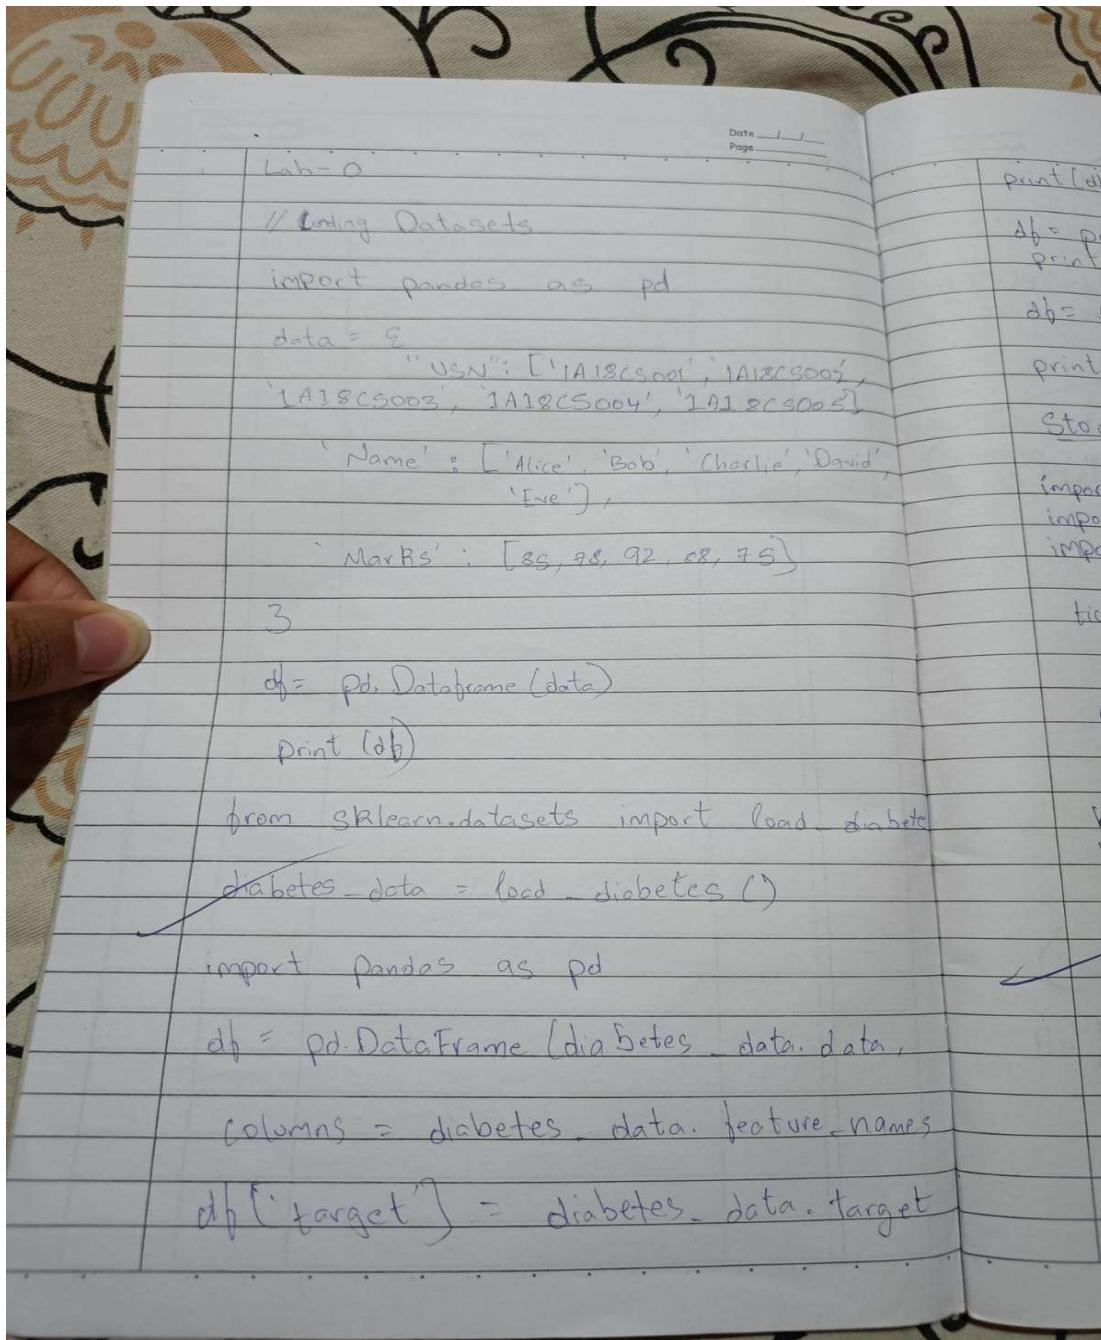 Date __/__/__
Page
Lab-0
// Loading Datasets
import pandas as pd
data = {
"USN": ['1A18CS001', '1A18CS002',
'1A18CS003', '1A18CS004', '1A18CS005]
'Name' : ['Alice', 'Bob', 'Charlie', 'David',
'Eve'],
'Marks' : [85, 78, 92, 88, 75]
}
df = pd. Dataframe (data)
print (df)
from sklearn.datasets import load_diabete
diabetes_data = load_diabetes ()
import pandas as pd
df = pd.DataFrame (diabetes_data.data,
columns = diabetes_data. feature_names
df['target'] = diabetes_data.target
print (d
df = p
print
df =
print
Sto
impor
impo
impo
tic